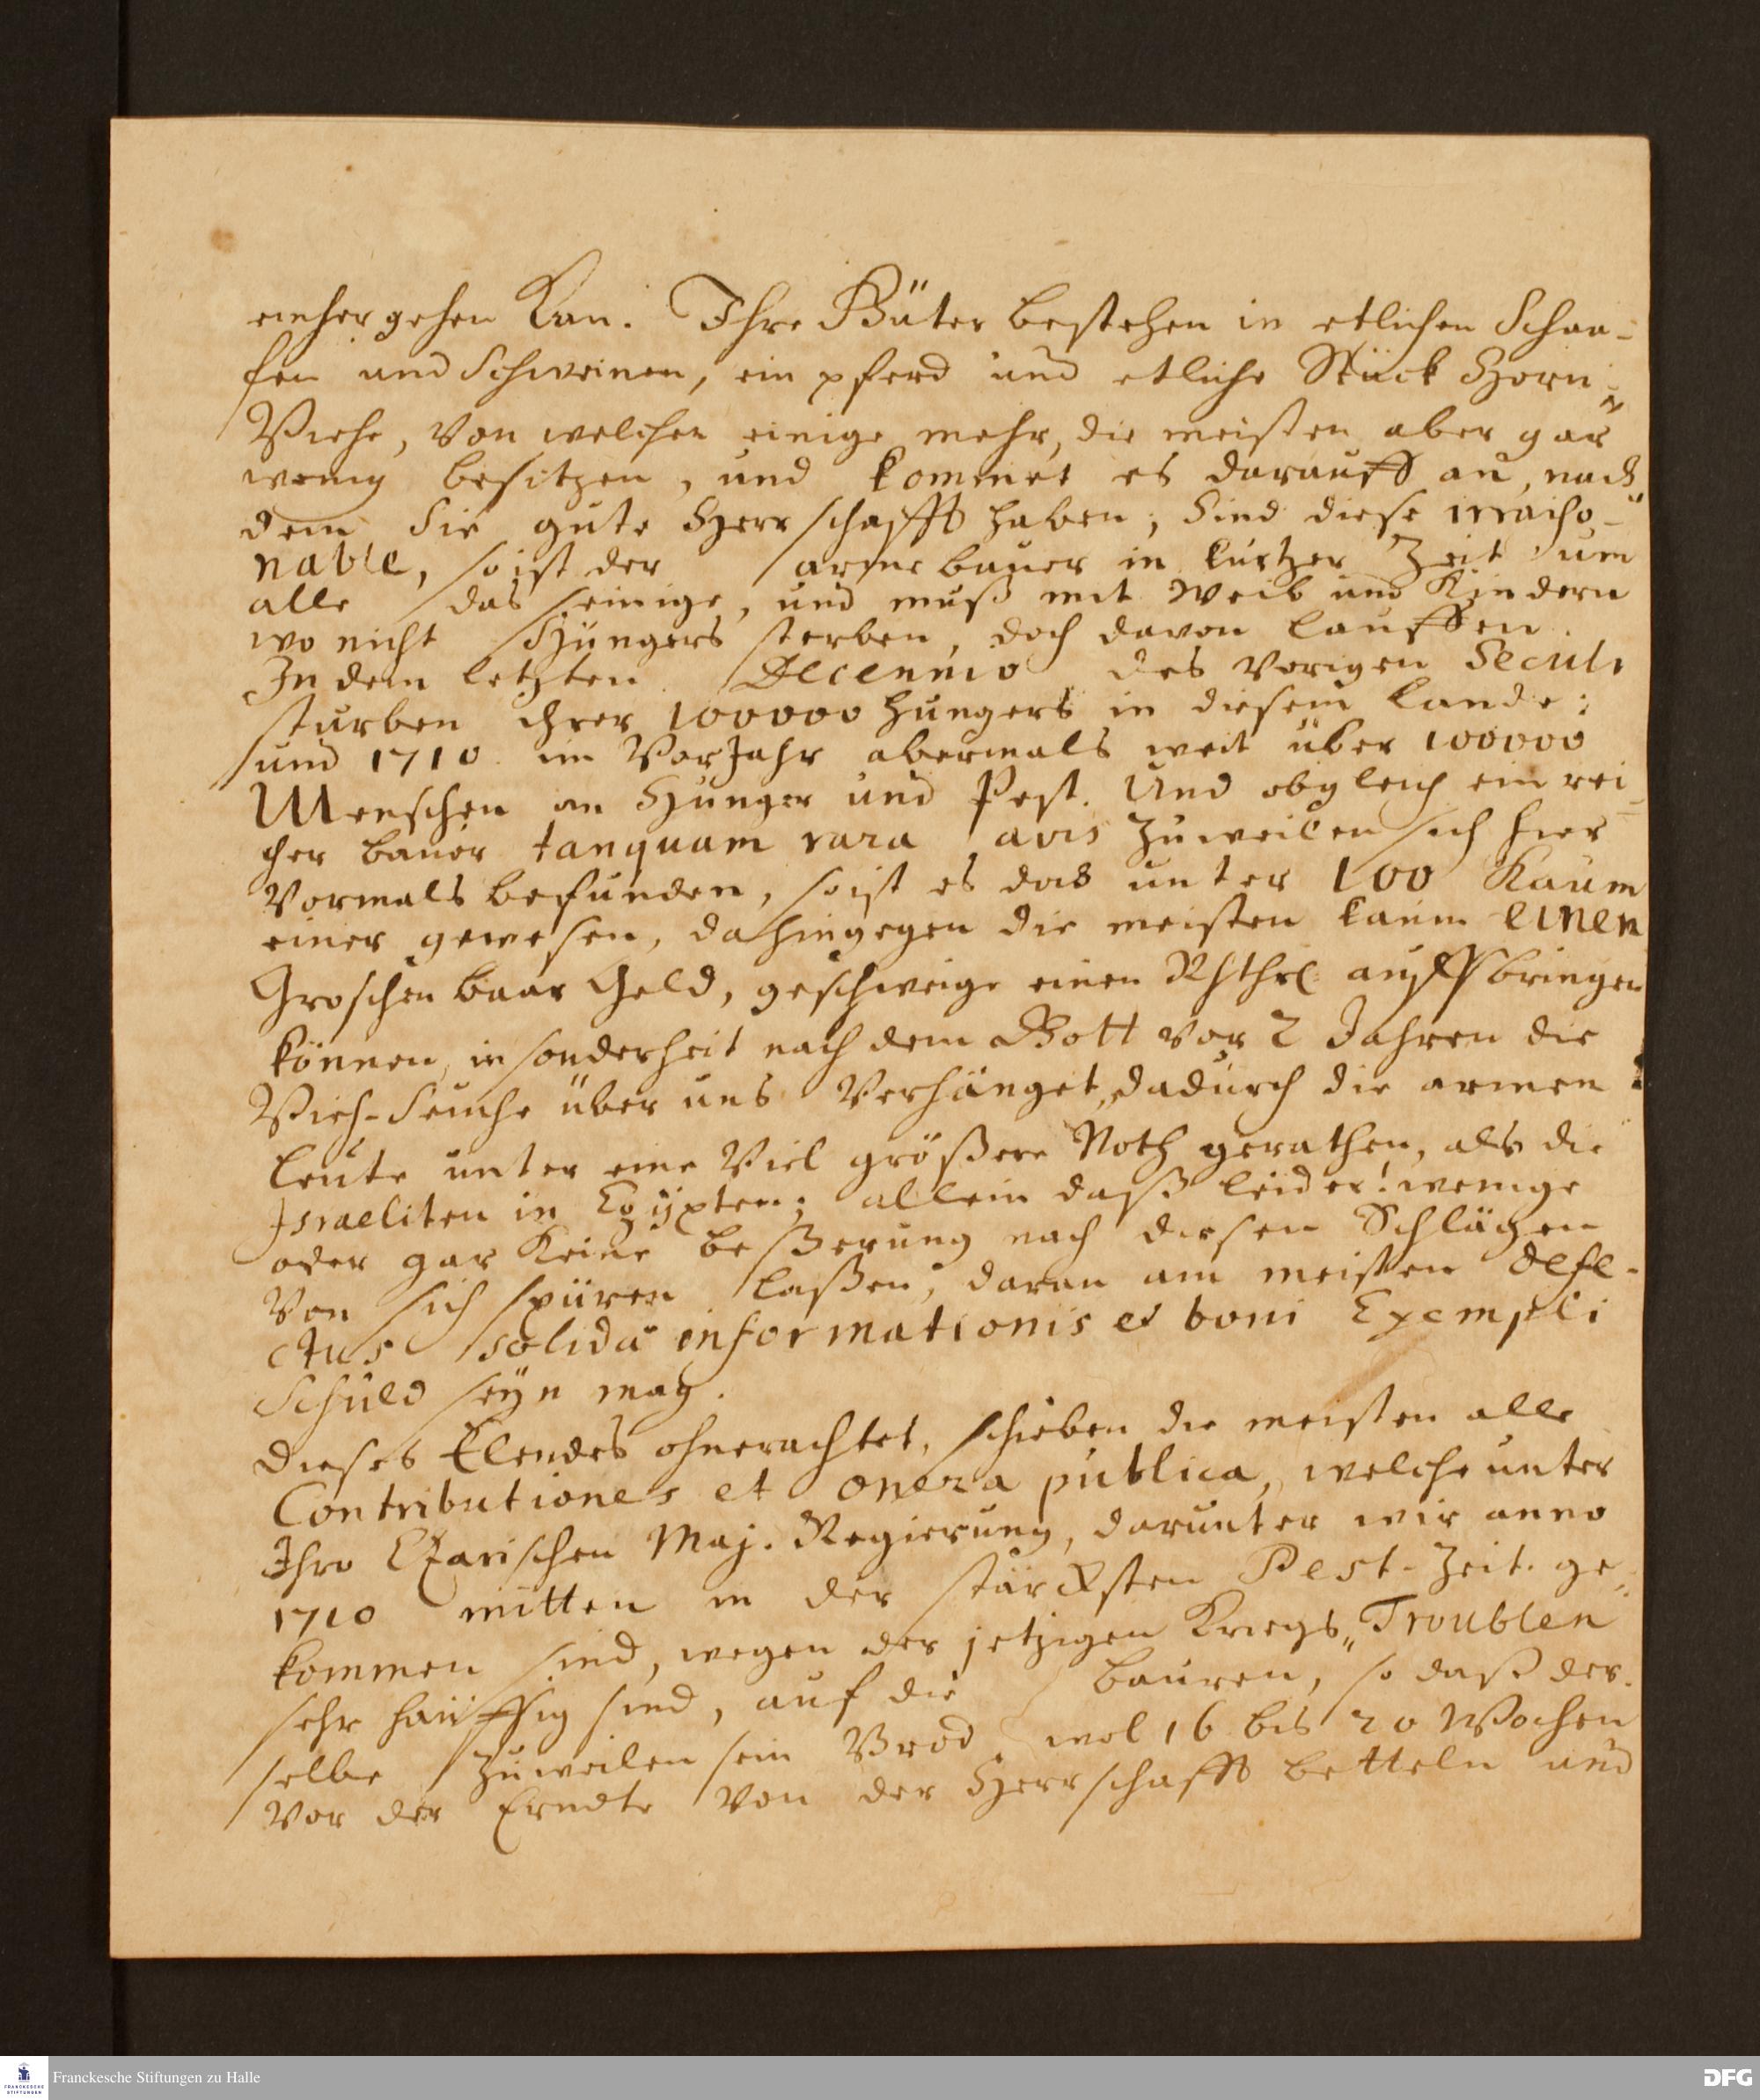 einher gehen kan. Ihre Güter bestehen in etlichen Schaa-
fen und Schweinen, ein pferd und etliche Stück Horn-
Viehe, von welchen einige mehr, die meisten aber gar
wenig besitzen, und kommet es darauff an, nach
dem Sie gute Herrschafft haben; Sind diese irraiso-
nable, so ist der arme baur in kurtzer Zeit um
alle das seinige, und muß mit Weib und Kindern
wo nicht Hungers sterben, doch davon lauffen.
In dem letzten Decennio des vorigen Seculi
sturben ihrer 100000 hungers in diesem Lande;
und 1710 im VorJahr abermals weit über 100000
Menschen an Hunger und Pest. Und obgleich ein rei-
cher bauer tanquam rara avis zuweilen sich hier
Vormals befunden, so ist es das unter 100 Kaum
einer gewesen, dahingegen die meisten kaum einen
Groschen baar Geld, geschweige einen Rhthl auffbringen
können, insonderheit nach dem Gott vor 2 Jahren die
Vieh-Seuche über uns Verhänget, dadurch die armen
Leute unter eine Viel größere Noth gerathen, als die
Israeliten in Egÿpten; allein daß leider! wenige
oder gar Keine beßerung nach diesen Schlägen
Von sich spüren laßen, daran am meisten defe-
ctus solidæ informationis et boni Exempli
Schuld seÿn mag.
Dieses Elendes ohnerachtet, schieben die meisten alle
Contributiones et onera publica, welche unter
Ihro Czarischen Maj. Regierung, darunter wir anno
1710 mitten in der stärcksten Pest-Zeit ge-
kommen sind, wegen der jetzigen Kriegs-Troublen
sehr häuffig sind, auf die bauren, so daß der-
selbe zuweilen sein Brod wol 16 bis 20 Wochen
Vor der Erndte Von der Herrschafft betteln und
Franckesche Stiftungen zu Halle
FRANCKESCHE STIFTUNGEN
DFG